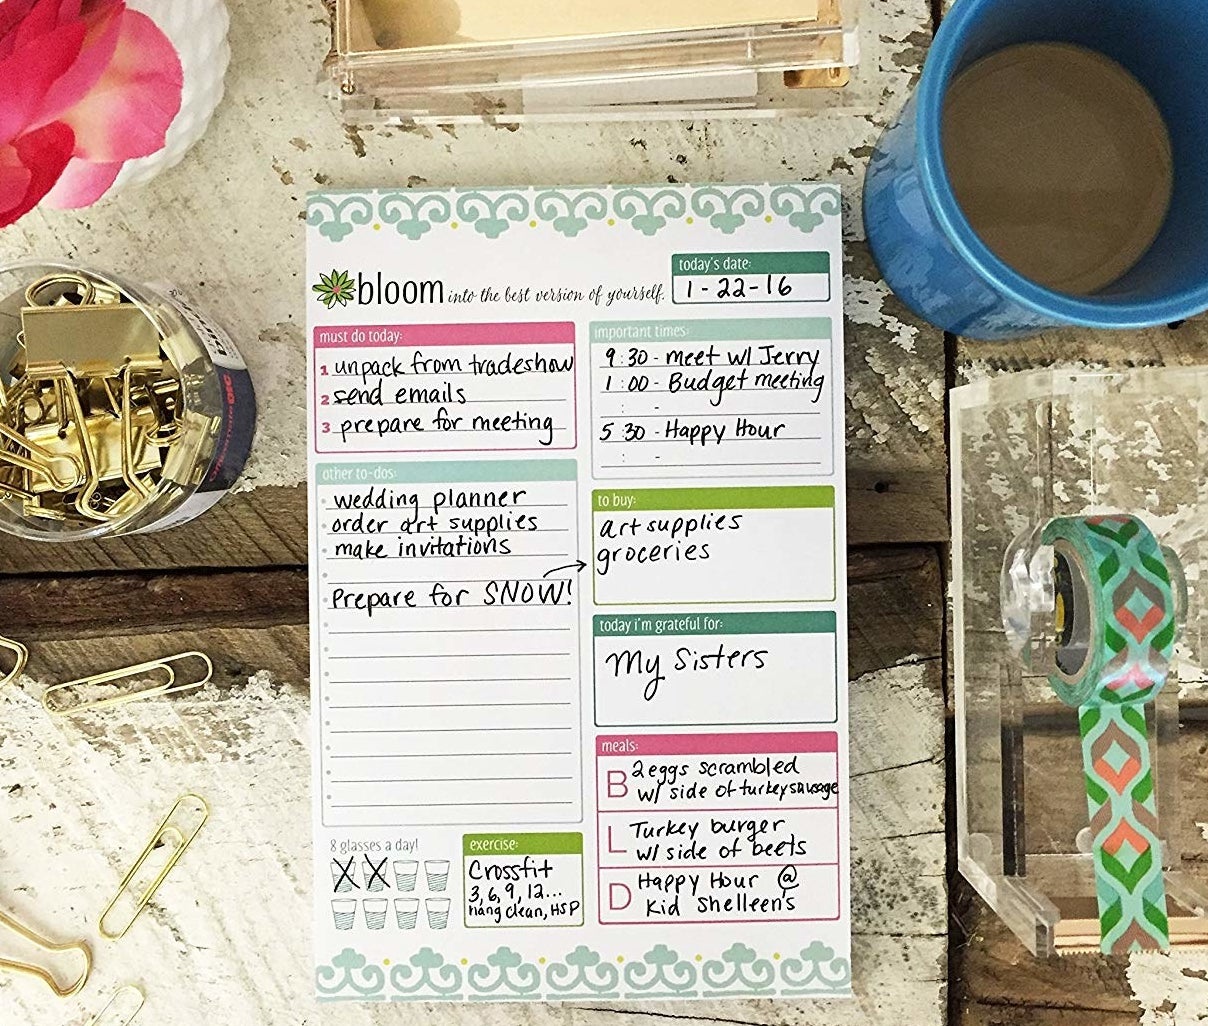 bloom into the best version of yourself.
today's date:
1-22-16
must do today:
1 unpack from tradeshow
2 send emails
3 prepare for meeting
important times:
9:30 - meet w/ Jerry
1:00 - Budget meeting
: -
5:30 - Happy Hour
: -
other to-dos:
wedding planner
order art supplies
make invitations
Prepare for SNOW!
to buy:
art supplies
groceries
today i'm grateful for:
My Sisters
meals:
B 2 eggs scrambled
w/ side of turkey sausage
L Turkey burger
w/ side of beets
D Happy Hour @
Kid Shelleen's
8 glasses a day!
exercise:
Crossfit
3, 6, 9, 12...
hang clean, HSP